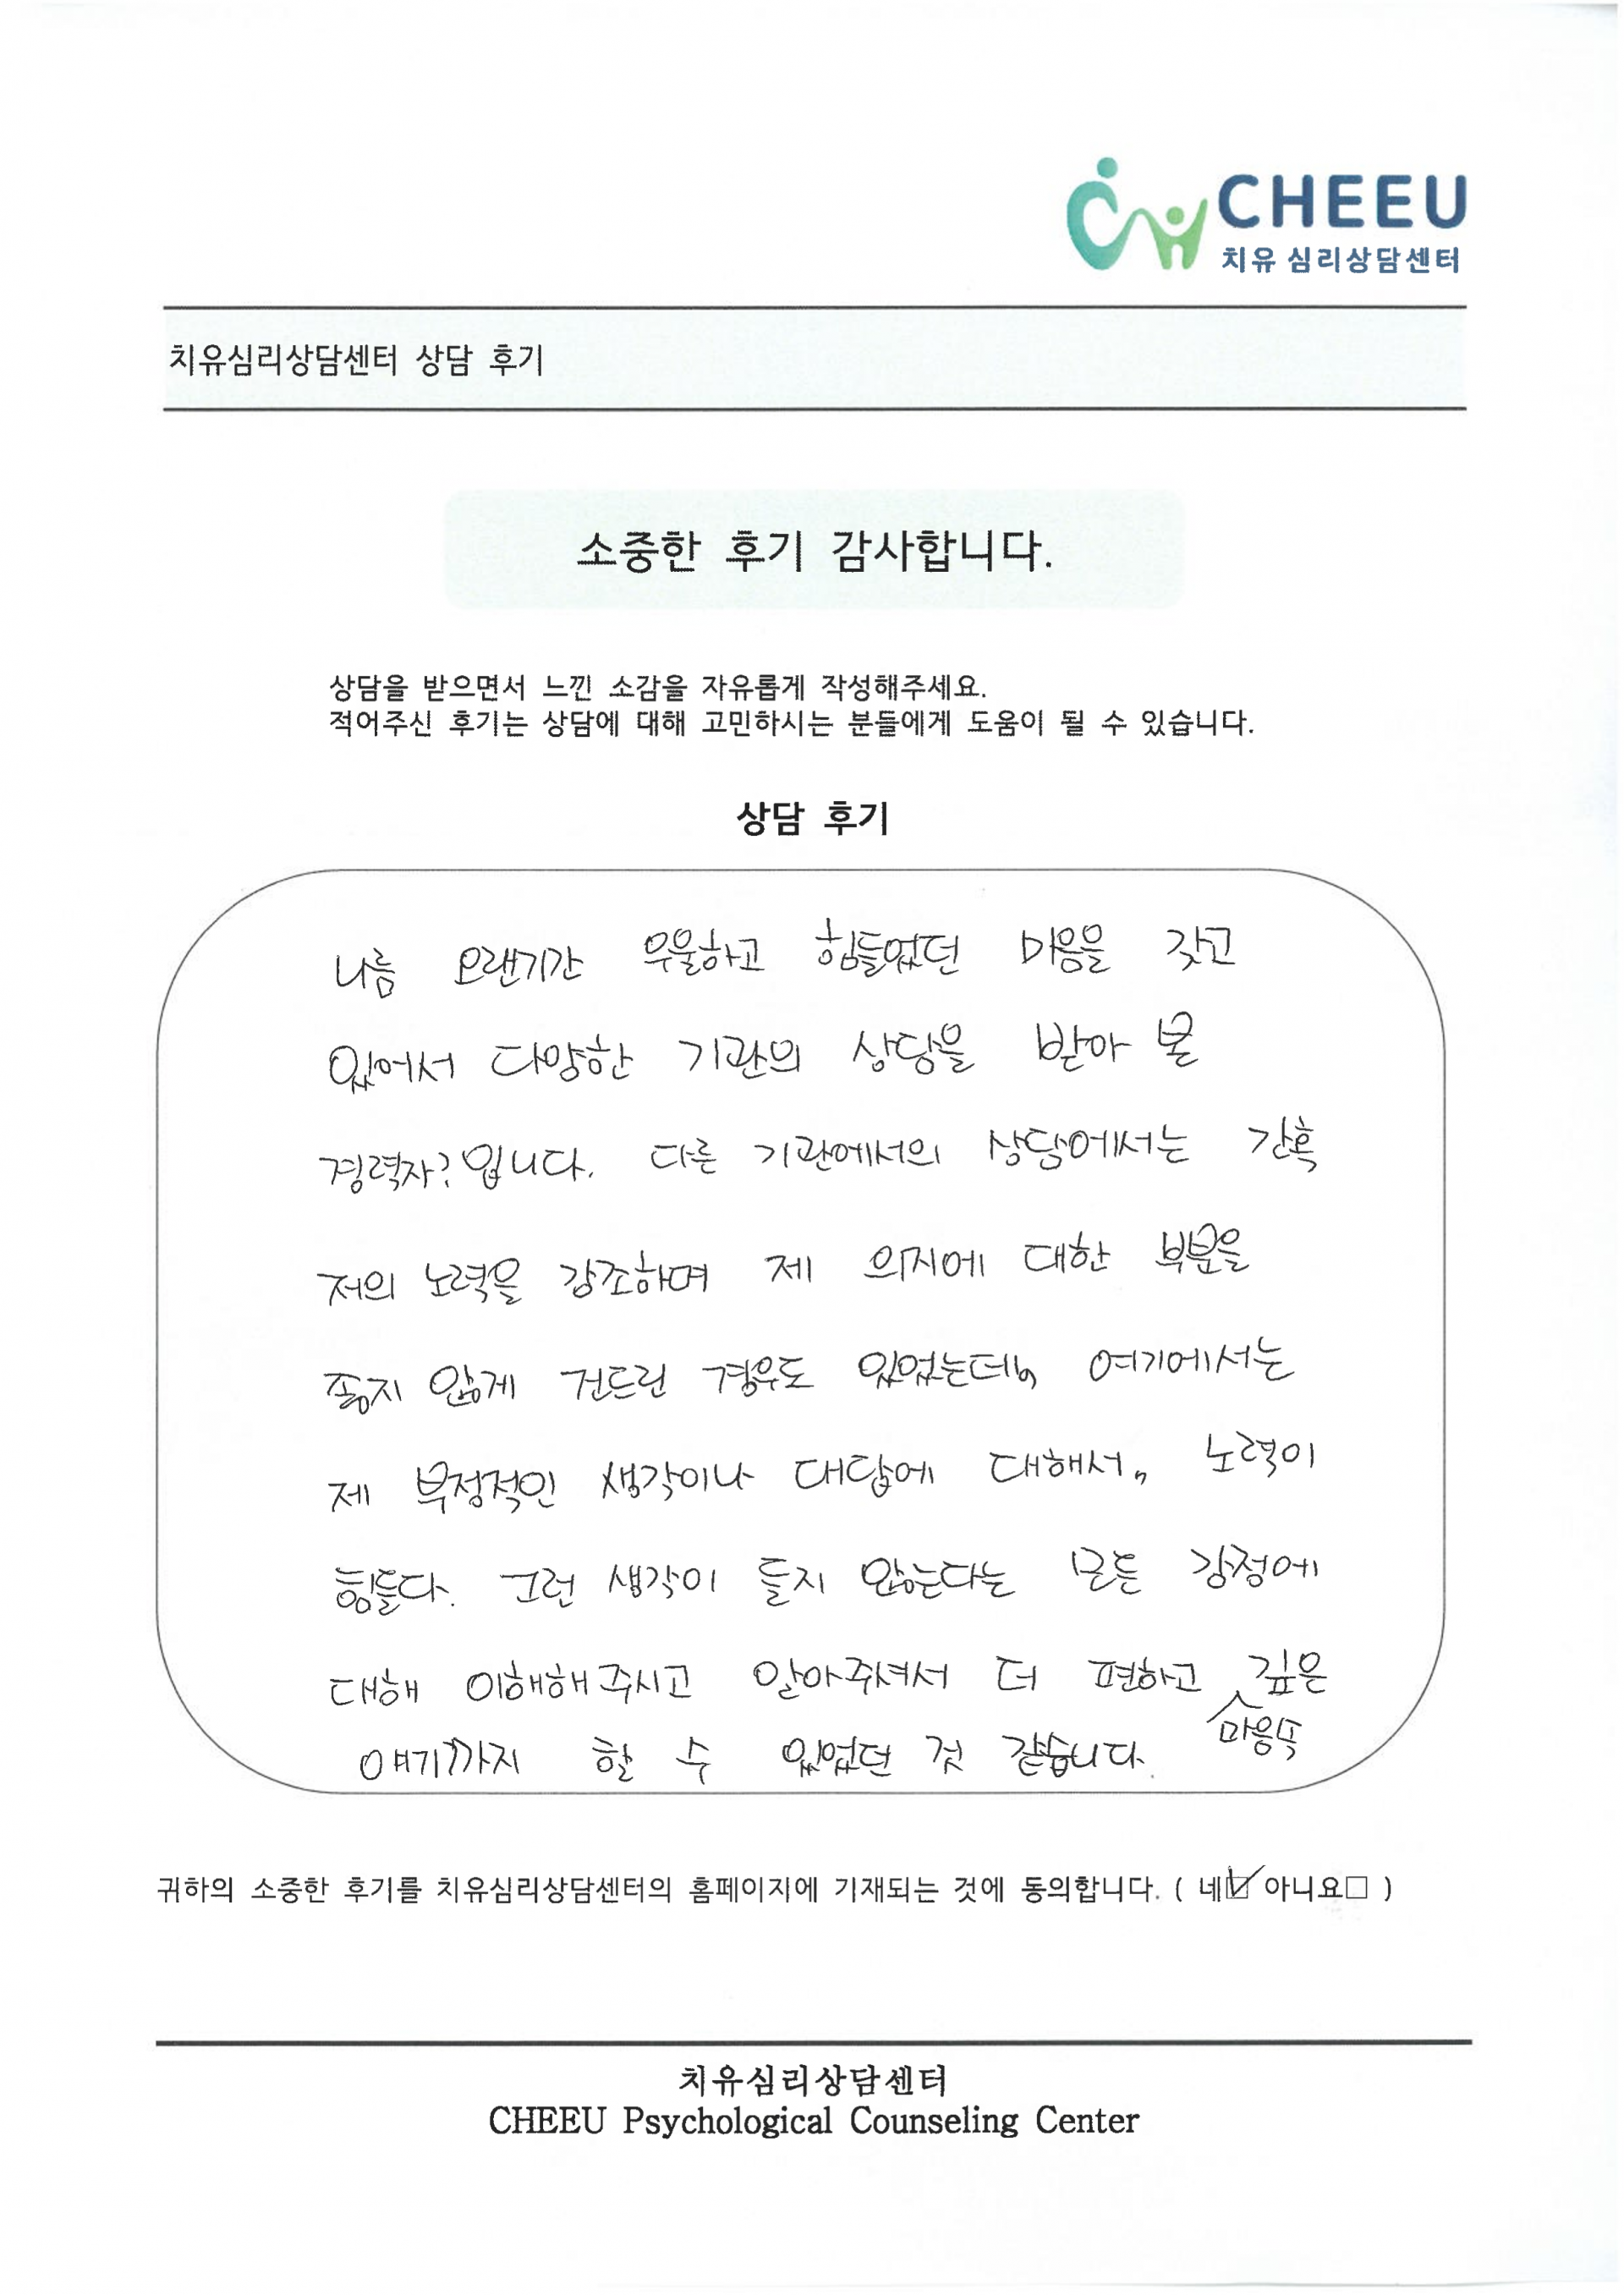 CHEEU
치유 심리상담센터
치유심리상담센터 상담 후기
소중한 후기 감사합니다.
상담을 받으면서 느낀 소감을 자유롭게 작성해주세요.
적어주신 후기는 상담에 대해 고민하시는 분들에게 도움이 될 수 있습니다.
상담 후기
나름 오랜기간 우울하고 힘들었던 마음을 갖고
있어서 다양한 기관의 상담을 받아 본
경력자?입니다. 다른 기관에서의 상담에서는 간혹
저의 노력을 강조하며 제 의지에 대한 부분을
좋지 않게 건드린 경우도 있었는데, 여기에서는
제 부정적인 생각이나 대답에 대해서, 노력이
힘들다. 그런 생각이 들지 않는다는 모든 감정에
대해 이해해주시고 알아주셔서 더 편하고 깊은
마음속
얘기까지 할 수 있었던 것 같습니다.
귀하의 소중한 후기를 치유심리상담센터의 홈페이지에 기재되는 것에 동의합니다. ( 네☑ 아니요□ )
치유심리상담센터
CHEEU Psychological Counseling Center